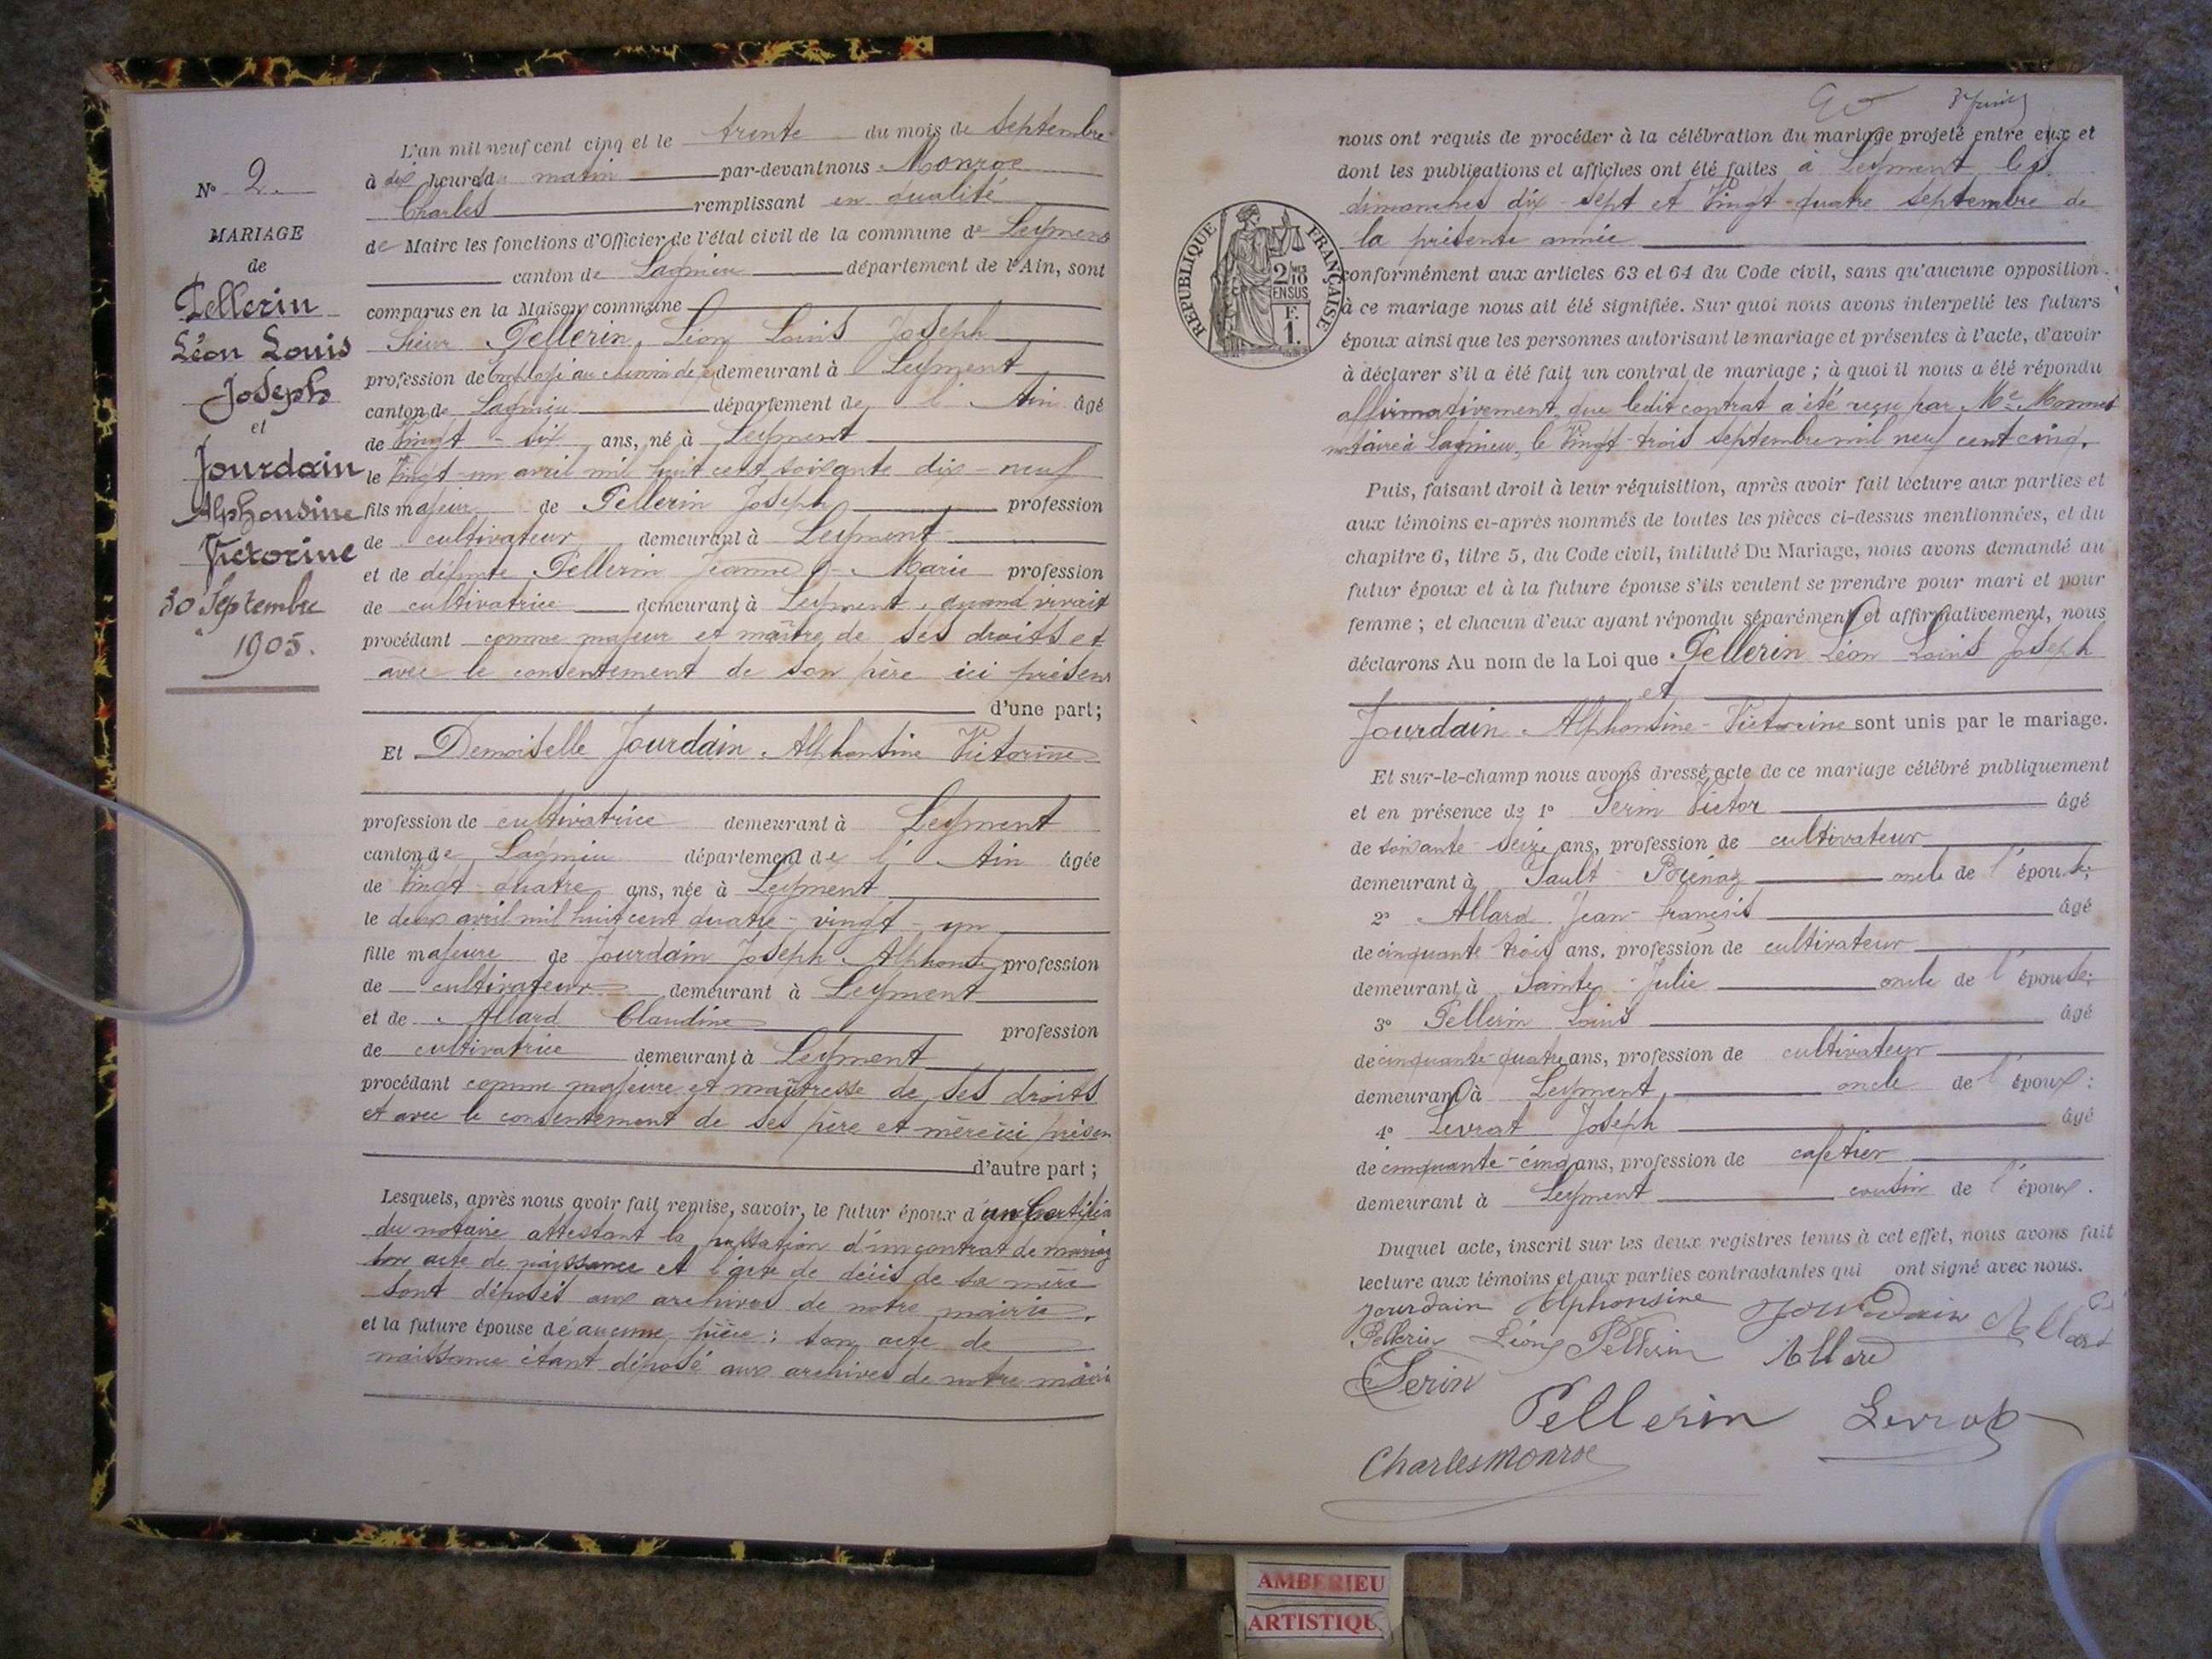 N° 2.
MARIAGE
de
Pellerin
Léon Louis
Joseph
et
Jourdain
Alphonsine
Victorine
30 Septembre
1905.
L'an mil neuf cent cinq et le trente du mois de Septembre
à dix heures du matin par-devant nous Monroe
Charles remplissant en qualité
de Maire les fonctions d'Officier de l'état civil de la commune de Leyment
canton de Lagnieu département de l'Ain, sont
comparus en la Maison commune
Sieur Pellerin, Léon Louis Joseph
profession de Employé au chemin de fer demeurant à Leyment
canton de Lagnieu département de l'Ain âgé
de Vingt-six ans, né à Leyment
le Vingt-un avril mil huit cent soixante dix-neuf
fils majeur de Pellerin Joseph profession
de cultivateur demeurant à Leyment
et de défunte Pellerin Jeanne-Marie profession
de cultivatrice demeurant à Leyment, quand vivait
procédant comme majeur et maître de ses droits et
avec le consentement de son père ici présent
d'une part;
Et Demoiselle Jourdain Alphonsine Victorine
profession de cultivatrice demeurant à Leyment
canton de Lagnieu département de l'Ain âgée
de Vingt-quatre ans, née à Leyment
le deux avril mil huit cent quatre-vingt-un
fille majeure de Jourdain Joseph Alphonse profession
de cultivateur demeurant à Leyment
et de Allard Claudine profession
de cultivatrice demeurant à Leyment
procédant comme majeure et maîtresse de ses droits
et avec le consentement de ses père et mère ici présen
d'autre part;
Lesquels, après nous avoir fait remise, savoir, le futur époux d'un Certifica
du notaire attestant la passation d'un contrat de mariag
son acte de naissance et l'acte de décès de sa mère
sont déposés aux archives de notre mairie.
et la future épouse d'aucune pièce: son acte de
naissance étant déposé aux archives de notre mairi
nous ont requis de procéder à la célébration du mariage projeté entre eux et
dont les publications et affiches ont été faites à Leyment les
dimanches dix-sept et Vingt-quatre septembre de
la présente année
RÉPUBLIQUE FRANÇAISE
2/10 EN SUS
F. 1.
conformément aux articles 63 et 64 du Code civil, sans qu'aucune opposition
à ce mariage nous ait été signifiée. Sur quoi nous avons interpellé les futurs
époux ainsi que les personnes autorisant le mariage et présentes à l'acte, d'avoir
à déclarer s'il a été fait un contrat de mariage; à quoi il nous a été répondu
affirmativement que ledit contrat a été reçu par Me Monnet
notaire à Lagnieu, le Vingt-trois septembre mil neuf cent cinq.
Puis, faisant droit à leur réquisition, après avoir fait lecture aux parties et
aux témoins ci-après nommés de toutes les pièces ci-dessus mentionnées, et du
chapitre 6, titre 5, du Code civil, intitulé Du Mariage, nous avons demandé au
futur époux et à la future épouse s'ils veulent se prendre pour mari et pour
femme; et chacun d'eux ayant répondu séparément et affirmativement, nous
déclarons Au nom de la Loi que Pellerin Léon Louis Joseph
et
Jourdain Alphonsine-Victorine sont unis par le mariage.
Et sur-le-champ nous avons dressé acte de ce mariage célébré publiquement
et en présence de 1° Serin Victor âgé
de soixante-seize ans, profession de cultivateur
demeurant à Sault-Brénaz oncle de l'épouse;
2° Allard Jean-françois âgé
de cinquante trois ans, profession de cultivateur
demeurant à Sainte-Julie oncle de l'épouse;
3° Pellerin Louis âgé
de cinquante-quatre ans, profession de cultivateur
demeurant à Leyment oncle de l'époux;
4° Levrat Joseph âgé
de cinquante-cinq ans, profession de cafetier
demeurant à Leyment cousin de l'époux.
Duquel acte, inscrit sur les deux registres tenus à cet effet, nous avons fait
lecture aux témoins et aux parties contractantes qui ont signé avec nous.
Jourdain Alphonsine Jourdain Allard
Pellerin Léon Pellerin Allard
Serin
Pellerin Levrat
Charles Monroe
AMBERIEU
ARTISTIQU